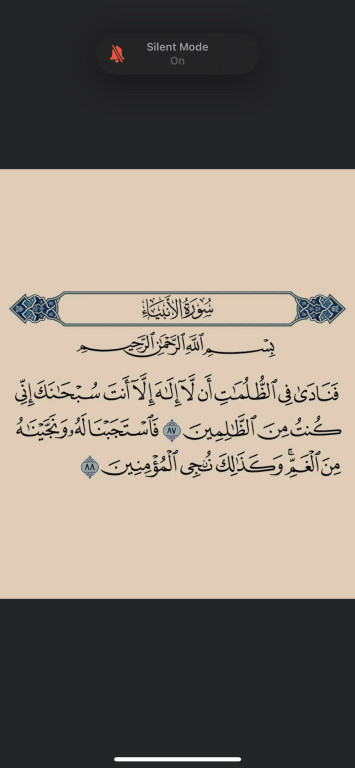 Silent Mode
On
سُورَةُ الأَنبِيَاءِ
بِسْمِ ٱللَّهِ ٱلرَّحْمَٰنِ ٱلرَّحِيمِ
فَنَادَىٰ فِى ٱلظُّلُمَٰتِ أَن لَّآ إِلَٰهَ إِلَّآ أَنتَ سُبْحَٰنَكَ إِنِّى
كُنتُ مِنَ ٱلظَّٰلِمِينَ ٨٧ فَٱسْتَجَبْنَا لَهُۥ وَنَجَّيْنَٰهُ
مِنَ ٱلْغَمِّ ۚ وَكَذَٰلِكَ نُۨجِى ٱلْمُؤْمِنِينَ ٨٨